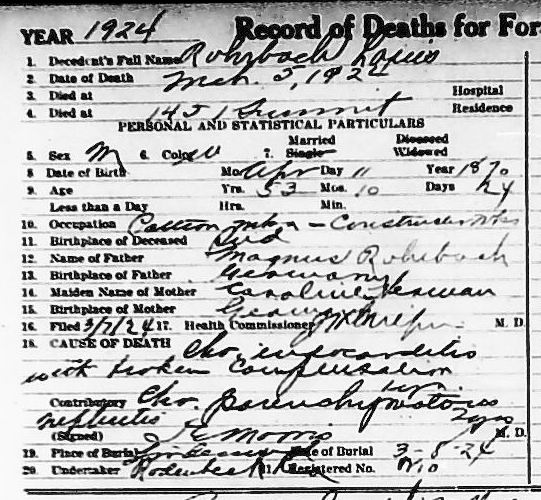 YEAR 1924 Record of Deaths for For
1. Decedent's Full Name Rohrbach Louis
2. Date of Death Mch. 5, 1924
3. Died at Hospital
4. Died at 1451 Summit Residence
PERSONAL AND STATISTICAL PARTICULARS
Married Divorced
5. Sex M 6. Color W 7. Single Widowed
8 Date of Birth Mo. Apr Day 11 Year 1870
9. Age Yrs. 53 Mos. 10 Days 24
Less than a Day Hrs. Min.
10. Occupation Pattern maker -
11. Birthplace of Deceased Ind
12. Name of Father Magnus Rohrbach
13. Birthplace of Father Germany
14. Maiden Name of Mother Caroline
15. Birthplace of Mother Germany
16. Filed 3/7/24 17. Health Commissioner M. D.
18. CAUSE OF DEATH Cho. myocarditis
with broken compensation
Contributory Cho. parenchymatous
nephritis
(Signed) E Morris M. D.
19. Place of Burial Lindenwood Date of Burial 3-8-24
20. Undertaker 21. Registered No.